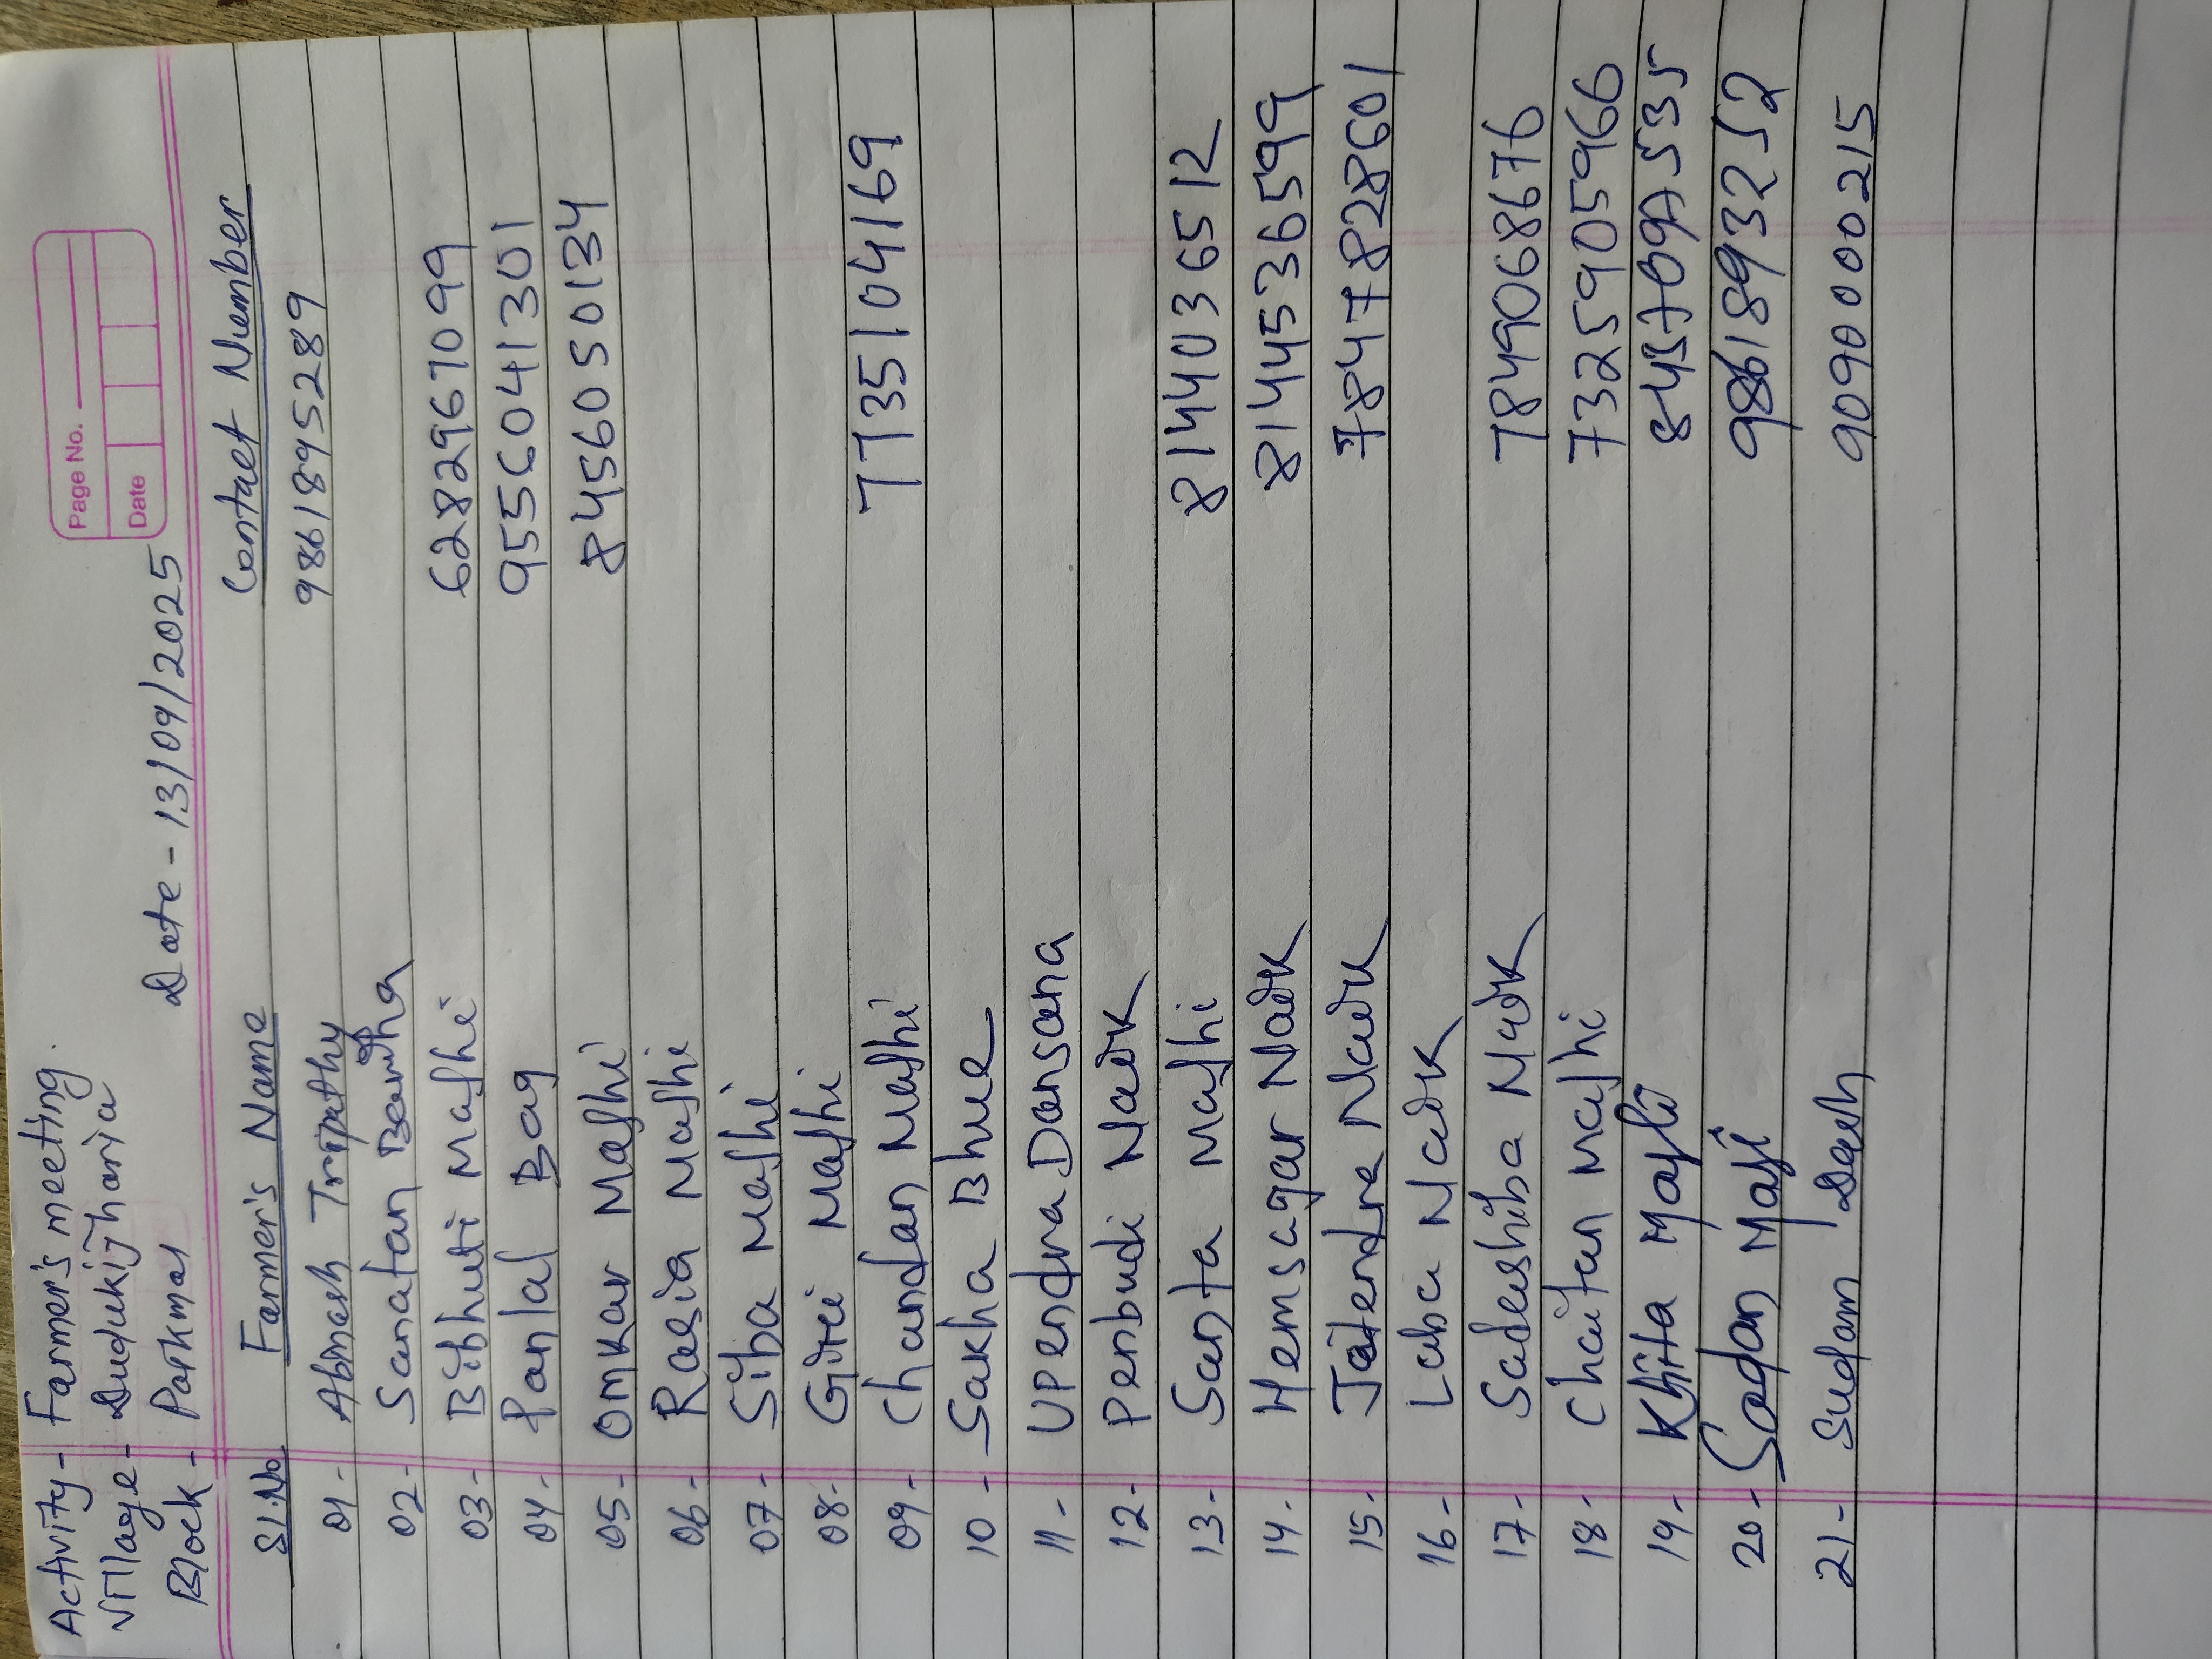 Page No.
Date
Activity - Farmer's meeting.
Village - Dudukijharia
Block - Patkmal Date - 13/09/2025
Sl.No Farmer's Name Contact Number
01 - Abinash Tripathy 9861895289
02 - Sanatan Bariha
03 - Bibhuti Majhi 6282967099
04 - Panlal Bag 9556041301
05 - Omkar Majhi 8456050134
06 - Rasia Majhi
07 - Siba Majhi
08 - Giri Majhi
09 - Chandan Majhi 7735104169
10 - Sakha Bhue
11 - UPendra Dansana
12 - Penbudi Naik
13 - Santa Majhi 8144036512
14 - Hemsagar Naik 8144536599
15 - Jatendra Naik 7847828601
16 - Laba Naik
17 - Sadashiba Naik 7849068676
18 - Chaitan Majhi 7325905966
19 - Khita Majhi
20 - Sadan Maji 9861893252
21 - Sudam Dash 9090000215